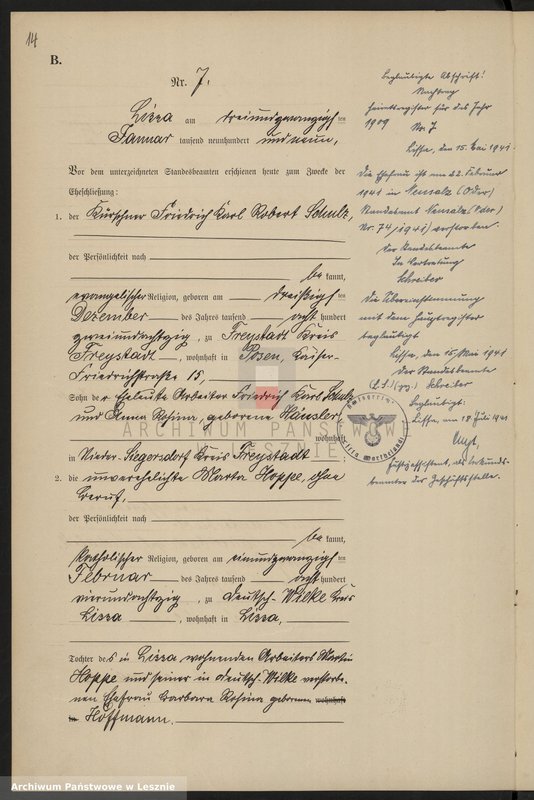 14
B.
Nr. 7.
Lissa am dreiundzwanzigsten
Januar tausend neunhundert und neun,
Vor dem unterzeichneten Standesbeamten erschienen heute zum Zwecke der
Eheschließung:
1. der Kürschner Friedrich Karl Robert Schulz,
der Persönlichkeit nach
be kannt,
evangelischer Religion, geboren am dreißigsten
Dezember des Jahres tausend acht hundert
zweiundachtzig, zu Freystadt Kreis
Freystadt, wohnhaft in Posen, Kaiser-
Friedrichstraße 15,
Sohn der Eheleute Arbeiter Friedrich Karl Schulz
und Anna Rosina, geborene Häusler,
wohnhaft
in Nieder-Siegersdorf Kreis Freystadt;
2. die unverehelichte Marta Hoppe, ohne
Beruf,
der Persönlichkeit nach
be kannt,
katholischer Religion, geboren am einundzwanzigsten
Februar des Jahres tausend acht hundert
vierundachtzig, zu Deutsch-Wilke Kreis
Lissa, wohnhaft in Lissa,
Tochter des in Lissa wohnenden Arbeiters Martin
Hoppe und seiner in Deutsch-Wilke verstorbe-
nen Ehefrau Barbara Rosina geborenen wohnhaft
in Hoffmann.
Beglaubigte Abschrift!
Nachtrag
Heiratsregister für das Jahr
1909
Nr. 7
Lissa, den 15. Mai 1941.
Die Ehefrau ist am 22. Februar
1941 in Neusalz (Oder)
Standesamt Neusalz (Oder)
Nr. 74/1941 verstorben.
Der Standesbeamte
In Vertretung
Schreiber
Die Übereinstimmung
mit dem Hauptregister
beglaubigt
Lissa, den 15. Mai 1941
Der Standesbeamte
(L.S.) (gz.) Schreiber
Beglaubigt:
Lissa, am 18 Juli 1941
Justizassistent, als Urkunds-
beamter der Geschäftsstelle.
ARCHIWUM PAŃSTWOWE
W LESZNIE
Archiwum Państwowe w Lesznie